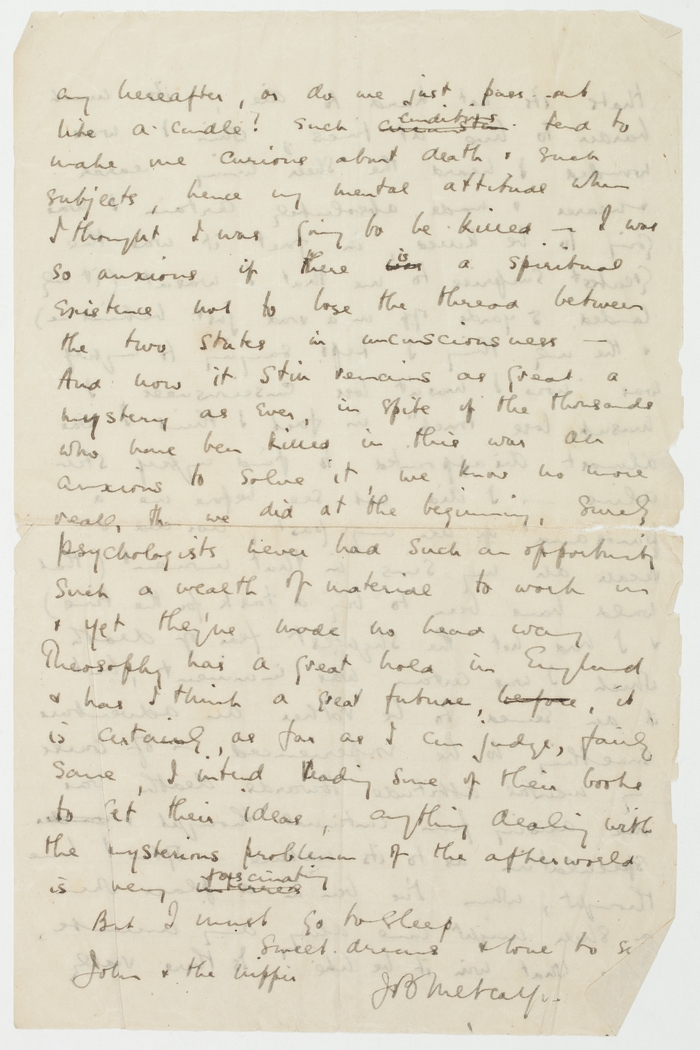 any hereafter, or do we just pass out
like a candle! Such conditions tend to
make me curious about death & such
subjects, hence my mental attitude when
I thought I was going to be killed — I was
so anxious if there is a spiritual
existence not to lose the thread between
the two states in unconsciousness —
And now it still remains as great a
mystery as ever, in spite of the thousands
who have been killed in this war all
anxious to solve it, we know no more
really than we did at the beginning, surely
psychologists never had such an opportunity
such a wealth of material to work on
& yet they've made no head way
Theosophy has a great hold in England
& has I think a great future, before, it
is certainly, as far as I can judge, fairly
sane, I intend reading some of their books
to get their ideas, anything dealing with
the mysterious problem of the afterworld
is very fascinating
But I must go to sleep
Sweet dreams & love to
John & the nipper
JBMetcalfe.